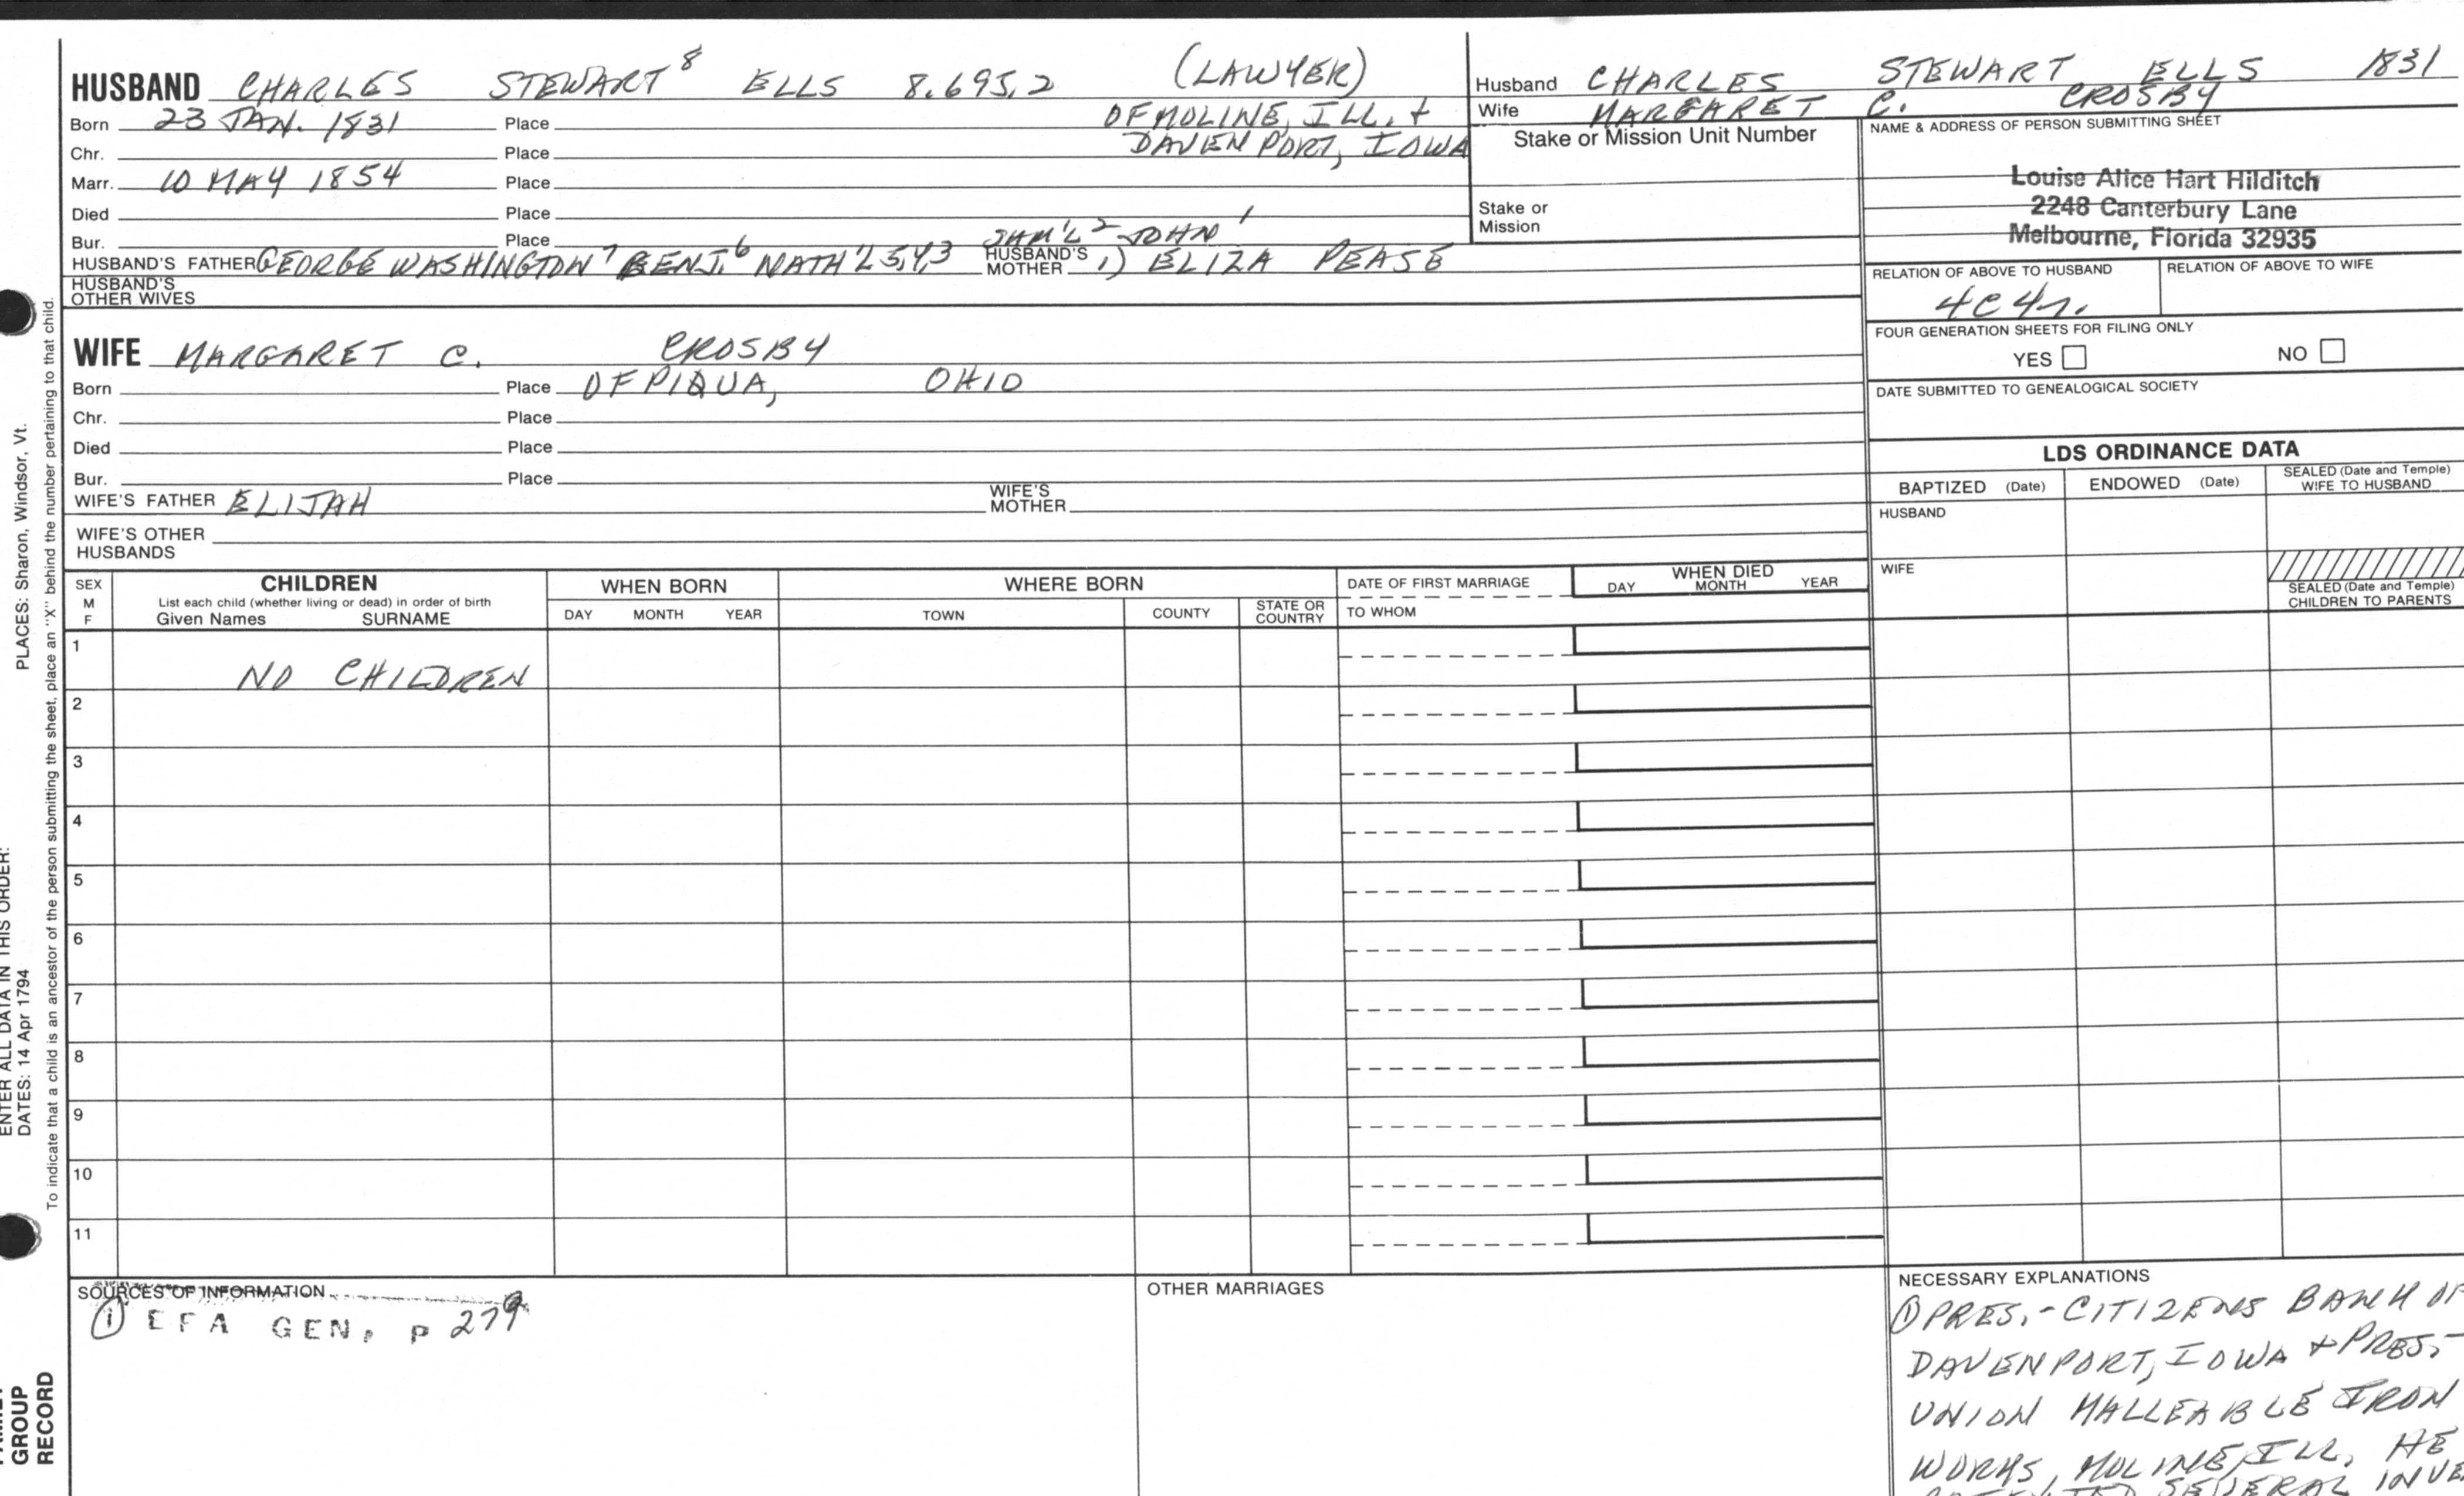 HUSBAND CHARLES STEWART 8 ELLS 8.695.2 (LAWYER)
Born 23 JAN. 1831 Place OF MOLINE, ILL. +
Chr. Place DAVENPORT, IOWA
Marr. 10 MAY 1854 Place
Died Place
Bur. Place SAM'L 2 JOHN 1
HUSBAND'S FATHER GEORGE WASHINGTON 7 BENJ. 6 NATH'L 5,4,3 HUSBAND'S MOTHER 1) ELIZA PEASE
HUSBAND'S OTHER WIVES
Husband CHARLES STEWART ELLS 1831
Wife MARGARET C. CROSBY
Stake or Mission Unit Number
Stake or
Mission
NAME & ADDRESS OF PERSON SUBMITTING SHEET
Louise Alice Hart Hilditch
2248 Canterbury Lane
Melbourne, Florida 32935
RELATION OF ABOVE TO HUSBAND RELATION OF ABOVE TO WIFE
4C4r.
FOUR GENERATION SHEETS FOR FILING ONLY
YES NO
DATE SUBMITTED TO GENEALOGICAL SOCIETY
WIFE MARGARET C. CROSBY
Born Place OF PIQUA, OHIO
Chr. Place
Died Place
Bur. Place
WIFE'S FATHER ELIJAH WIFE'S MOTHER
WIFE'S OTHER
HUSBANDS
LDS ORDINANCE DATA
BAPTIZED (Date) ENDOWED (Date) SEALED (Date and Temple) WIFE TO HUSBAND
HUSBAND
WIFE
SEALED (Date and Temple)
CHILDREN TO PARENTS
SEX M F CHILDREN WHEN BORN WHERE BORN DATE OF FIRST MARRIAGE WHEN DIED
List each child (whether living or dead) in order of birth
Given Names SURNAME DAY MONTH YEAR TOWN COUNTY STATE OR COUNTRY TO WHOM DAY MONTH YEAR
1 NO CHILDREN
2
3
4
5
6
7
8
9
10
11
SOURCES OF INFORMATION
① EFA GEN, p 279
OTHER MARRIAGES
NECESSARY EXPLANATIONS
① PRES.-CITIZENS BANK OF
DAVENPORT, IOWA + PRES.-
UNION MALLEABLE IRON
WORKS, MOLINE, ILL. HE
SEVERAL INVE
PLACES: Sharon, Windsor, Vt.
ENTER ALL DATA IN THIS ORDER:
DATES: 14 Apr 1794
To indicate that a child is an ancestor of the person submitting the sheet, place an "X" behind the number pertaining to that child.
GROUP
RECORD